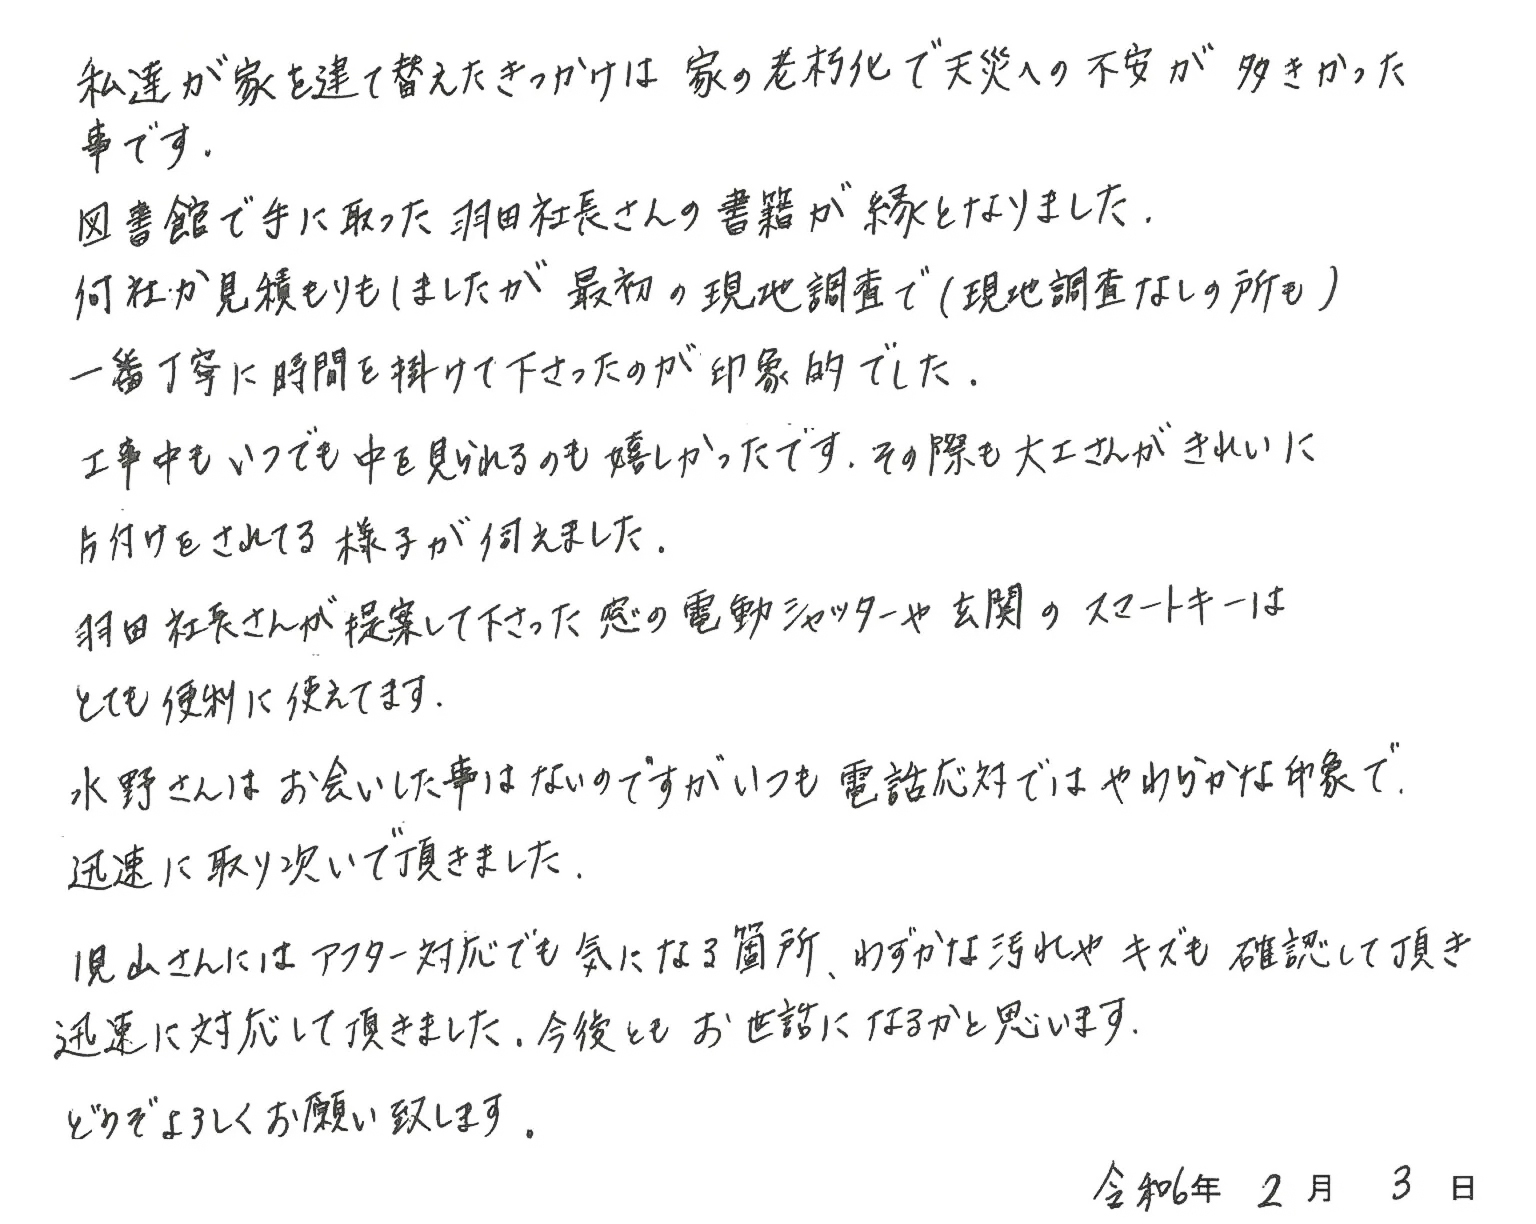 私達が家を建て替えたきっかけは 家の老朽化で天災への不安が 多きかった
事です.
図書館で手に取った 羽田社長さんの書籍が 縁となりました.
何社か見積もりもしましたが 最初の現地調査で(現地調査なしの所も)
一番丁寧に時間を掛けて下さったのが印象的でした.
工事中もいつでも中を見られるのも嬉しかったです.その際も大工さんがきれいに
片付けをされてる様子が伺えました.
羽田社長さんが提案して下さった 窓の電動シャッターや玄関のスマートキーは
とても便利に使えてます.
水野さんはお会いした事はないのですがいつも電話応対ではやわらかな印象で.
迅速に取り次いで頂きました.
児山さんにはアフター対応でも気になる箇所、わずかな汚れやキズも確認して頂き
迅速に対応して頂きました.今後ともお世話になるかと思います.
どうぞよろしくお願い致します.
令和6年 2月 3日